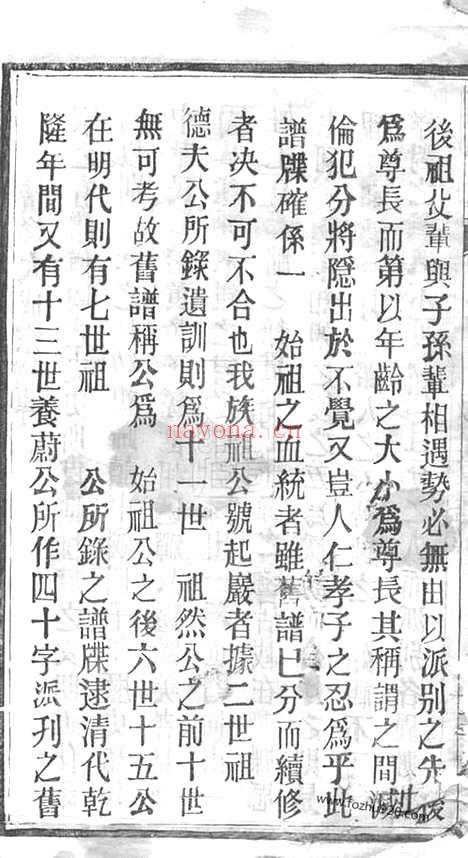 後祖父輩與子孫輩相遇勢必無由以派別之先後
爲尊長而第以年齡之大小爲尊長其稱謂之間滅
倫犯分將隱出於不覺又豈人仁孝子之忍爲乎此
譜牒確係一 始祖之血統者雖舊譜已分而續修
者决不可不合也我族祖公號起巖者據二世祖
德夫公所錄遺訓則爲十一世 祖然公之前十世
無可考故舊譜稱公爲 始祖公之後六世十五公
在明代則有七世祖 公所錄之譜牒逮清代乾
隆年間又有十三世養蔚公所作四十字派刋之舊
nayona.cn
www.fozhu920.com